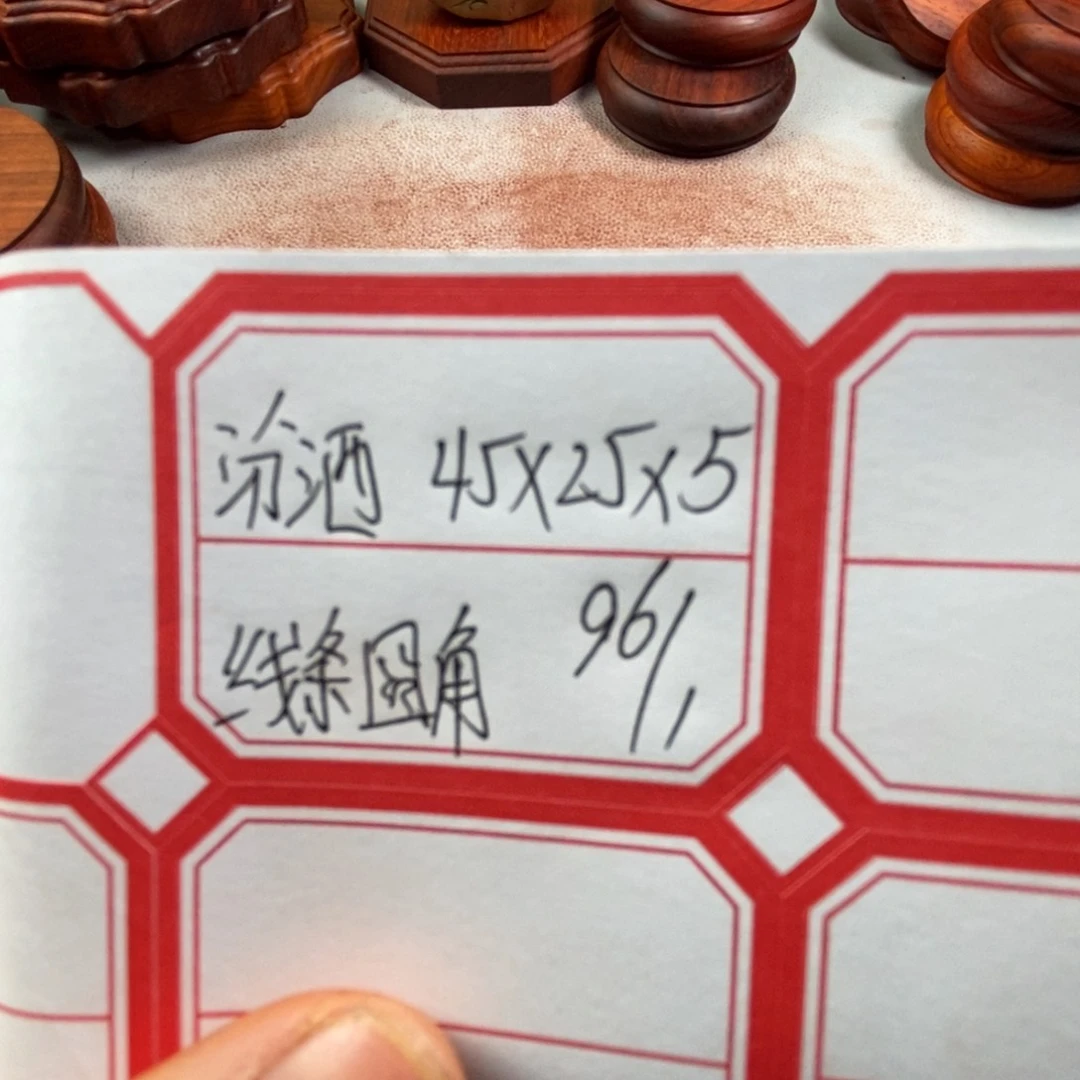 汾酒 45X25X5
线条圆角 96/1